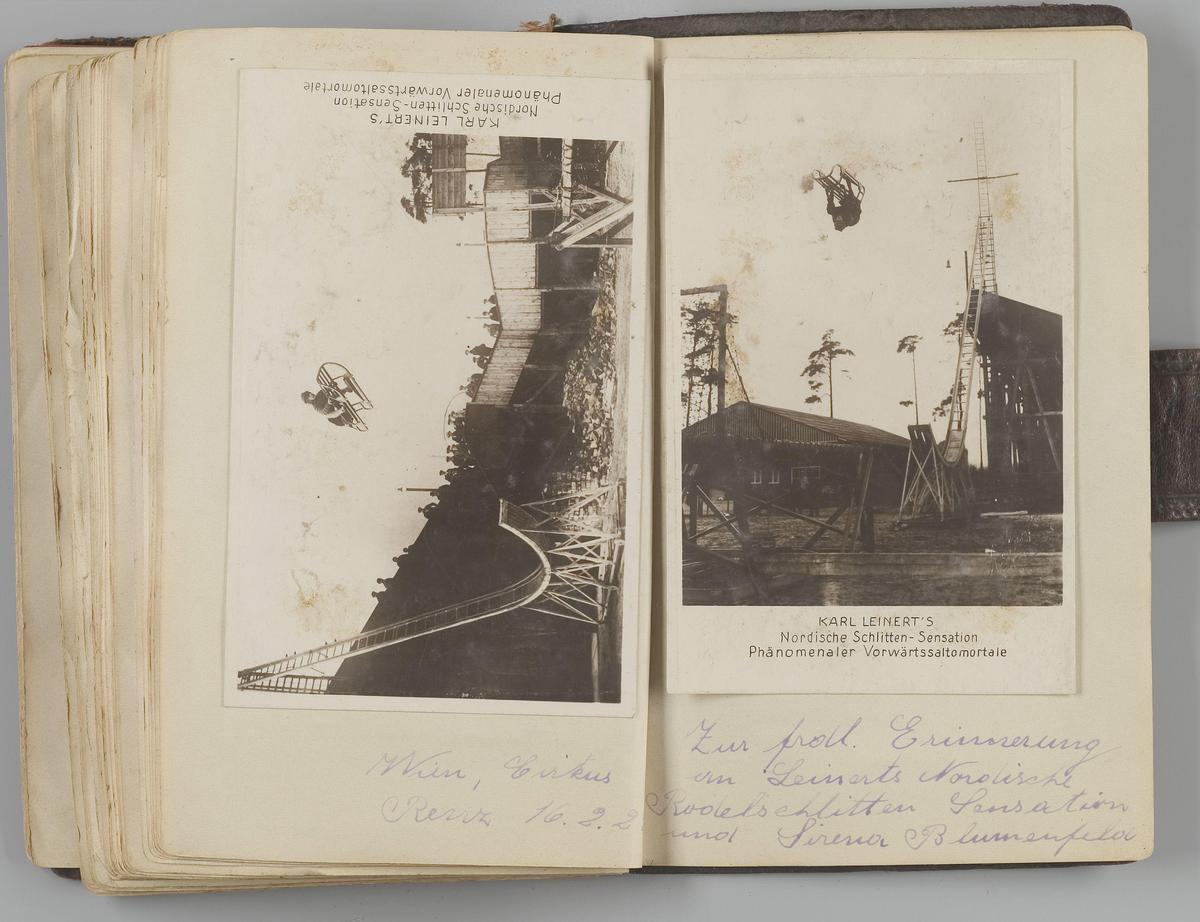 KARL LEINERT'S
Nordische Schlitten-Sensation
Phänomenaler Vorwärtssaltomortale
Wien, Cirkus
Renz 16.2.2
KARL LEINERT'S
Nordische Schlitten-Sensation
Phänomenaler Vorwärtssaltomortale
Zur frdl. Erinnerung
an Leinerts Nordische
Rodelschlitten Sensation
und Sirena Blumenfeld